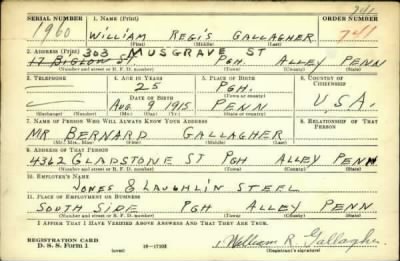 341
SERIAL NUMBER 1. NAME (Print) ORDER NUMBER
1960 WILLIAM REGIS GALLAGHER 741
(First) (Middle) (Last)
2. ADDRESS (Print) 303 MUSGRAVE ST
17 BIGLOW ST PGH. ALLEY PENN
(Number and street or R. F. D. number) (Town) (County) (State)
3. TELEPHONE 4. AGE IN YEARS 5. PLACE OF BIRTH 6. COUNTRY OF CITIZENSHIP
— 25 PGH.
DATE OF BIRTH (Town or county)
— AUG 9 1915 PENN U.S.A.
(Exchange) (Number) (Mo.) (Day) (Yr.) (State or country)
7. NAME OF PERSON WHO WILL ALWAYS KNOW YOUR ADDRESS 8. RELATIONSHIP OF THAT PERSON
MR BERNARD GALLAGHER
(Mr., Mrs., Miss) (First) (Middle) (Last)
9. ADDRESS OF THAT PERSON
4362 GLADSTONE ST PGH ALLEY PENN
(Number and street or R. F. D. number) (Town) (County) (State)
10. EMPLOYER'S NAME
JONES & LAUGHLIN STEEL
11. PLACE OF EMPLOYMENT OR BUSINESS
SOUTH SIDE PGH ALLEY PENN
(Number and street or R. F. D. number) (Town) (County) (State)
I AFFIRM THAT I HAVE VERIFIED ABOVE ANSWERS AND THAT THEY ARE TRUE.
REGISTRATION CARD
D. S. S. Form 1 (over) 16—17105 William R. Gallagher
(Registrant's signature)